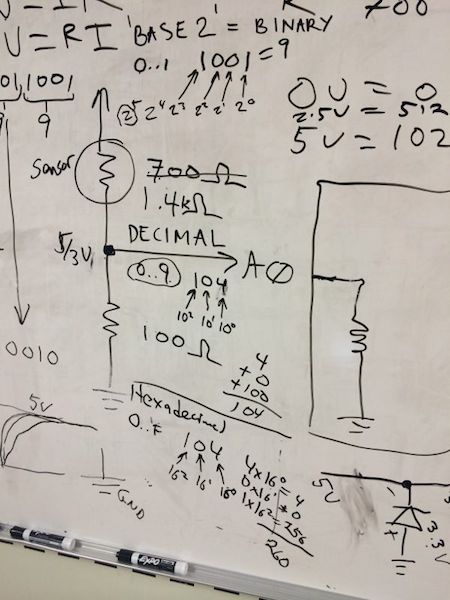 V = RI
'BASE 2 = BINARY
700
0..1 1001 = 9
2⁵ 2⁴ 2³ 2² 2¹ 2⁰
01 1001
9
0V = 0
2.5V = 512
5V = 102
Sensor
700Ω
1.4kΩ
5/3V
DECIMAL
A0
0..9 104
10² 10¹ 10⁰
100Ω
4
+ 0
+ 100
104
0010
Hexadecimal
0..F
104
16² 16¹ 16⁰
4×16⁰ = 4
0×16¹ = 0
1×16² = 256
260
5V
GND
5V
3.3V
EXPO